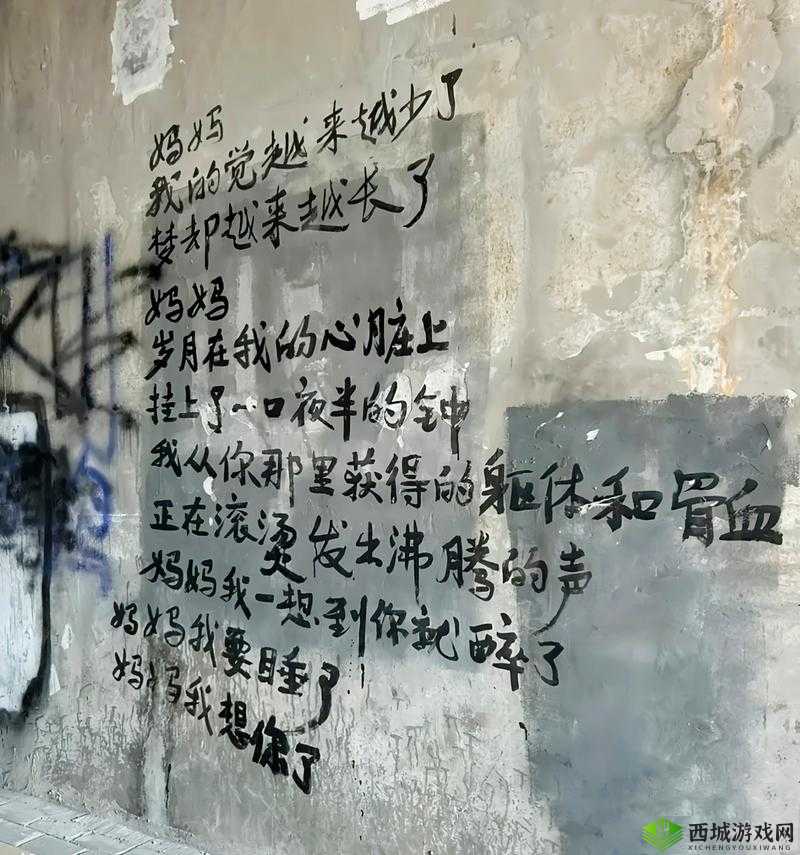 妈妈
我的觉越来越少了
梦却越来越长了
妈妈
岁月在我的心脏上
挂上了一口夜半的钟
我从你那里获得的躯体和骨血
正在滚烫发出沸腾的声
妈妈我一想到你就醉了
妈妈我要睡了
妈妈我想你了
西城游戏网
XICHENGYOUXIWANG